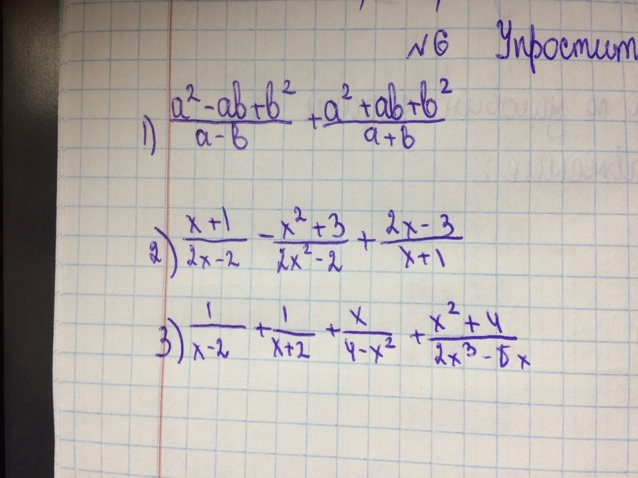 №6 Упростит
1) (a² - ab + b²)/(a - b) + (a² + ab + b²)/(a + b)
2) (x + 1)/(2x - 2) - (x² + 3)/(2x² - 2) + (2x - 3)/(x + 1)
3) 1/(x - 2) + 1/(x + 2) + x/(4 - x²) + (x² + 4)/(2x³ - 8x)